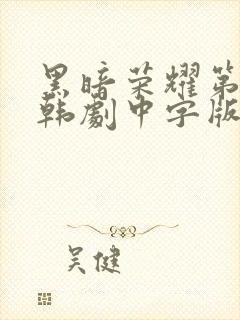 黑暗荣耀第
韩劇中字版
吴健